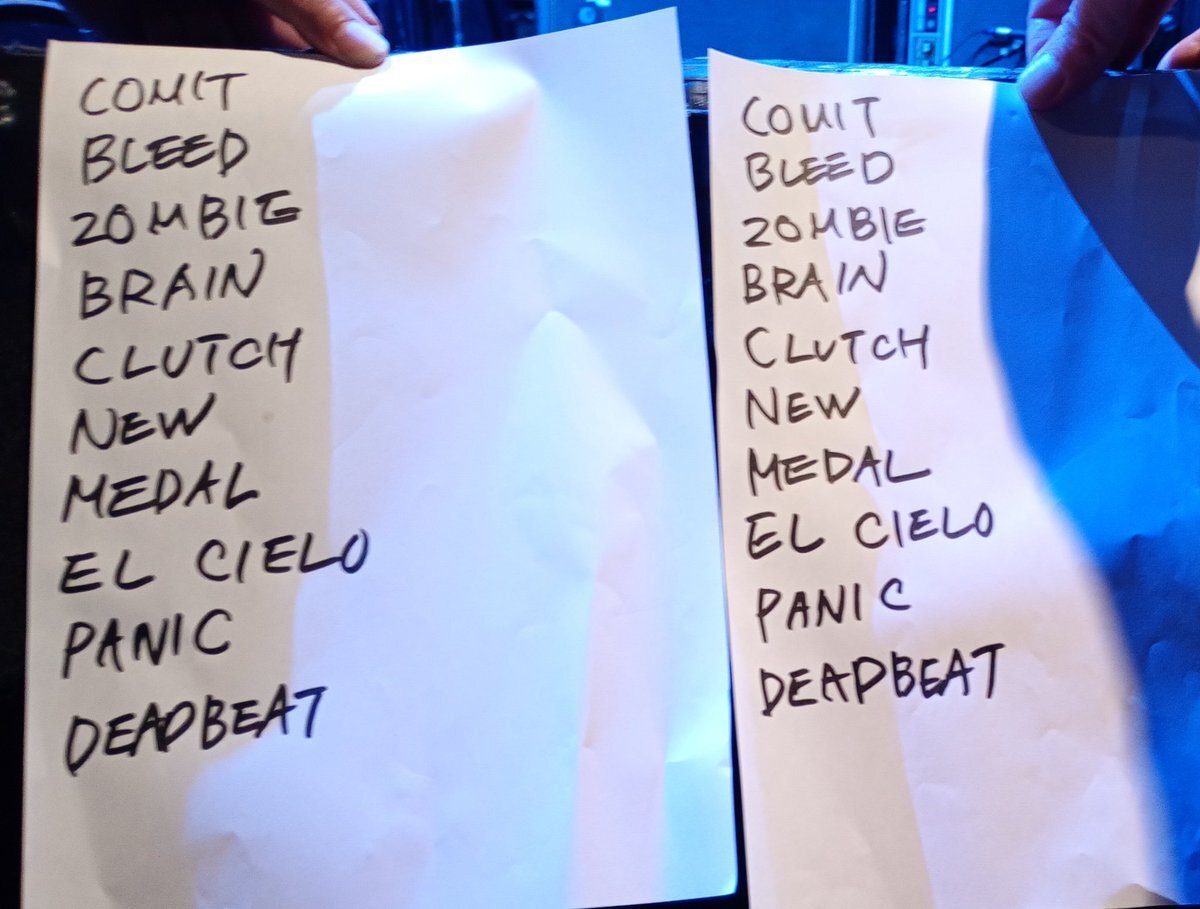 COMIT
BLEED
ZOMBIE
BRAIN
CLUTCH
NEW
MEDAL
EL CIELO
PANIC
DEADBEAT
COMIT
BLEED
ZOMBIE
BRAIN
CLUTCH
NEW
MEDAL
EL CIELO
PANIC
DEADBEAT